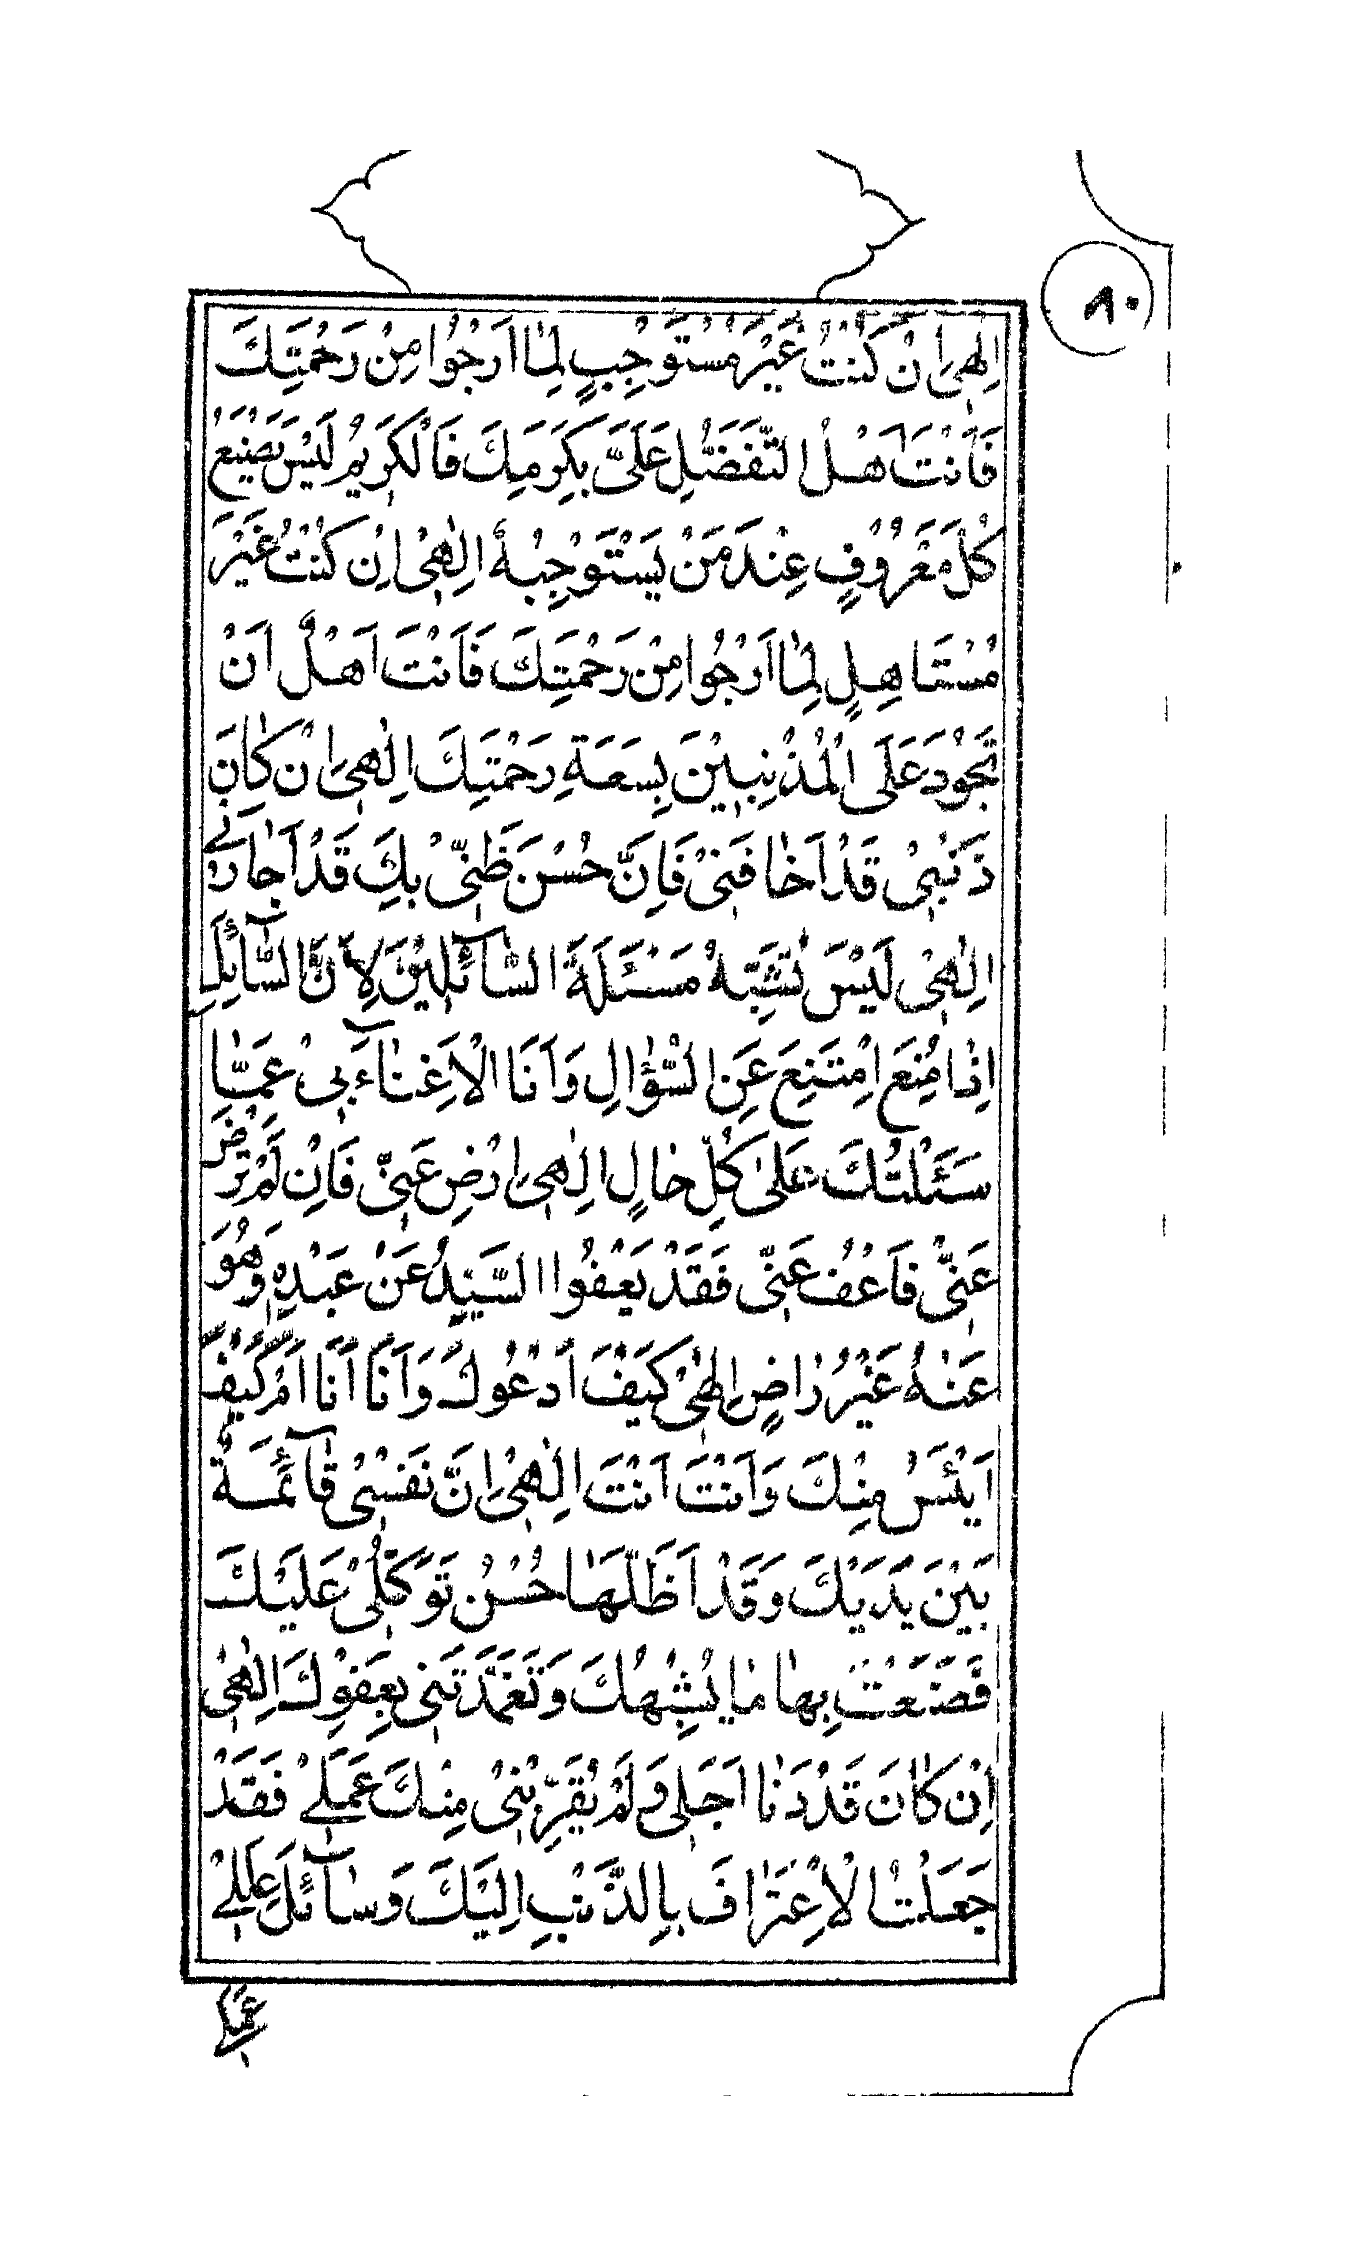 ٨٠
اِلٰهِىْ اِنْ كُنْتُ غَيْرَ مُسْتَوْجِبٍ لِمٰا اَرْجُوا مِنْ رَحْمَتِكَ
فَاَنْتَ اَهْلُ التَّفَضُّلِ عَلَىَّ بِكَرَمِكَ فَالْكَرِيْمُ لَيْسَ يَصْنَعُ
كُلَّ مَعْرُوْفٍ عِنْدَ مَنْ يَسْتَوْجِبُهُ اِلٰهِىْ اِنْ كُنْتُ غَيْرَ
مُسْتَاهِلٍ لِمٰا اَرْجُوا مِنْ رَحْمَتِكَ فَاَنْتَ اَهْلٌ اَنْ
تَجُوْدَ عَلَى الْمُذْنِبِيْنَ بِسَعَةِ رَحْمَتِكَ اِلٰهِىْ اِنْ كٰانَ
ذَنْبِىْ قَدْ اَخٰافَنِىْ فَاِنَّ حُسْنَ ظَنِّىْ بِكَ قَدْ اَجٰارَنِىْ
اِلٰهِىْ لَيْسَ تُشْبِهُ مَسْئَلَةُ السّٰآئِلِيْنَ لِاَنَّ السّٰآئِلَ
اِذٰا مُنِعَ امْتَنَعَ عَنِ السُّؤٰالِ وَاَنَا لَاغِنٰاءَ بِىْ عَمّٰا
سَئَلْتُكَ عَلىٰ كُلِّ حٰالٍ اِلٰهِىْ اِرْضِ عَنِّىْ فَاِنْ لَمْ تَرْضَ
عَنِّىْ فَاعْفُ عَنِّىْ فَقَدْ يَعْفُوا السَّيِّدُ عَنْ عَبْدِهِ وَهُوَ
عَنْهُ غَيْرُ رٰاضٍ اِلٰهِىْ كَيْفَ اَدْعُوكَ وَاَنَا اَنَا اَمْ كَيْفَ
اَيْئَسُ مِنْكَ وَاَنْتَ اَنْتَ اِلٰهِىْ اِنَّ نَفْسِىْ قٰآئِمَةٌ
بَيْنَ يَدَيْكَ وَقَدْ اَظَلَّهٰا حُسْنُ تَوَكُّلِىْ عَلَيْكَ
فَصَنَعْتَ بِهٰا مٰا يُشْبِهُكَ وَتَغَمَّدْتَنِى بِعَفْوِكَ اِلٰهِىْ
اِنْ كٰانَ قَدْ دَنٰا اَجَلِى وَلَمْ يُقَرِّبْنِىْ مِنْكَ عَمَلِىْ فَقَدْ
جَعَلْتُ الْاِعْتِرٰافَ بِالذَّنْبِ اِلَيْكَ وَسٰآئِلَ عِلَلِىْ